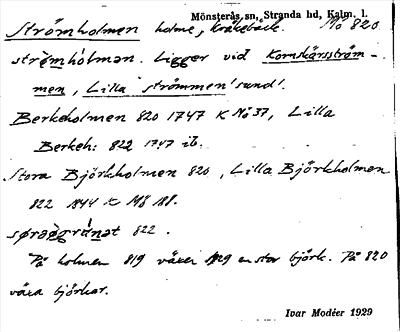 Mönsterås sn, Stranda hd, Kalm. l.
Strömholmen holme, Kråkebäck. Mö 820
strèmhòlman. Ligger vid Kornskärsström-
men, Lilla strömmen / sund/.
Berkeholmen 820 1747 K Mö 37, Lilla
Berkeh: 822 1747 ib.
Stora Björkholmen 820, Lilla Björkholmen
822 1844 K Mö 188.
822.
På holmen 819 växer 1929 en stor björk. På 820
växa björkar.
Ivar Modéer 1929